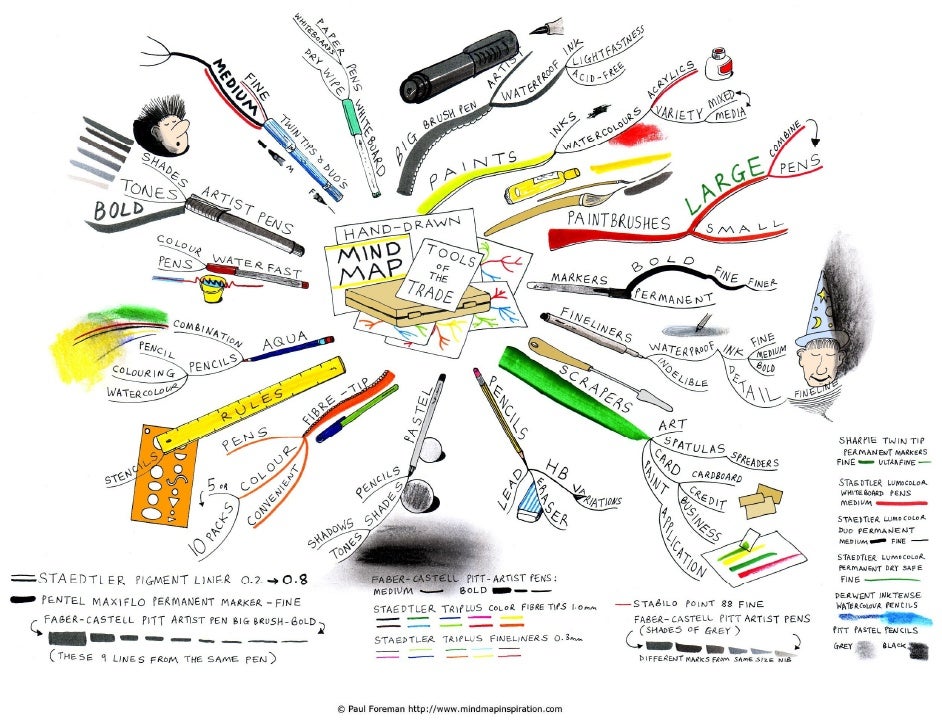 HAND-DRAWN
MIND
MAP
TOOLS
OF THE
TRADE
BIG BRUSH PEN
ARTIST
WATERPROOF
INK
LIGHTFASTNESS
ACID-FREE
PAINTS
INKS
WATERCOLOURS
ACRYLICS
VARIETY
MIXED
MEDIA
PAINTBRUSHES
LARGE
COMBINE
PENS
SMALL
MARKERS
BOLD
FINE
FINER
PERMANENT
FINELINERS
WATERPROOF
INK
FINE
MEDIUM
BOLD
INDELIBLE
DETAIL
FINELINE
SCRAPERS
ART
SPATULAS
SPREADERS
CARD
CARDBOARD
CREDIT
BUSINESS
PAINT
APPLICATION
PENCILS
HB
VARIATIONS
LEAD
ERASER
PASTEL
PENCILS
SHADES
SHADOWS
TONES
FIBRE-TIP
PENS
COLOUR
5 OR
10 PACKS
CONVENIENT
RULES
STENCILS
AQUA
PENCILS
COMBINATION
PENCIL
COLOURING
WATERCOLOUR
WATERFAST
COLOUR
PENS
ARTIST PENS
SHADES
TONES
BOLD
TWIN TIPS & DUO'S
FINE
MEDIUM
M
F
WHITEBOARD
PENS
PAPER
WHITEBOARDS
DRY WIPE
STAEDTLER PIGMENT LINER 0.2 → 0.8
PENTEL MAXIFLO PERMANENT MARKER - FINE
FABER-CASTELL PITT ARTIST PEN BIG BRUSH-BOLD
(THESE 9 LINES FROM THE SAME PEN)
FABER-CASTELL PITT-ARTIST PENS:
MEDIUM BOLD
STAEDTLER TRIPLUS COLOR FIBRE TIPS 1.0mm
STAEDTLER TRIPLUS FINELINERS 0.3mm
STABILO POINT 88 FINE
FABER-CASTELL PITT ARTIST PENS
(SHADES OF GREY)
DIFFERENT MARKS FROM SAME SIZE NIB
SHARPIE TWIN TIP
PERMANENT MARKERS
FINE ULTRAFINE
STAEDTLER LUMOCOLOR
WHITEBOARD PENS
MEDIUM
STAEDTLER LUMOCOLOR
DUO PERMANENT
MEDIUM FINE
STAEDTLER LUMOCOLOR
PERMANENT DRY SAFE
FINE
DERWENT INKTENSE
WATERCOLOUR PENCILS
PITT PASTEL PENCILS
GREY BLACK
© Paul Foreman http://www.mindmapinspiration.com